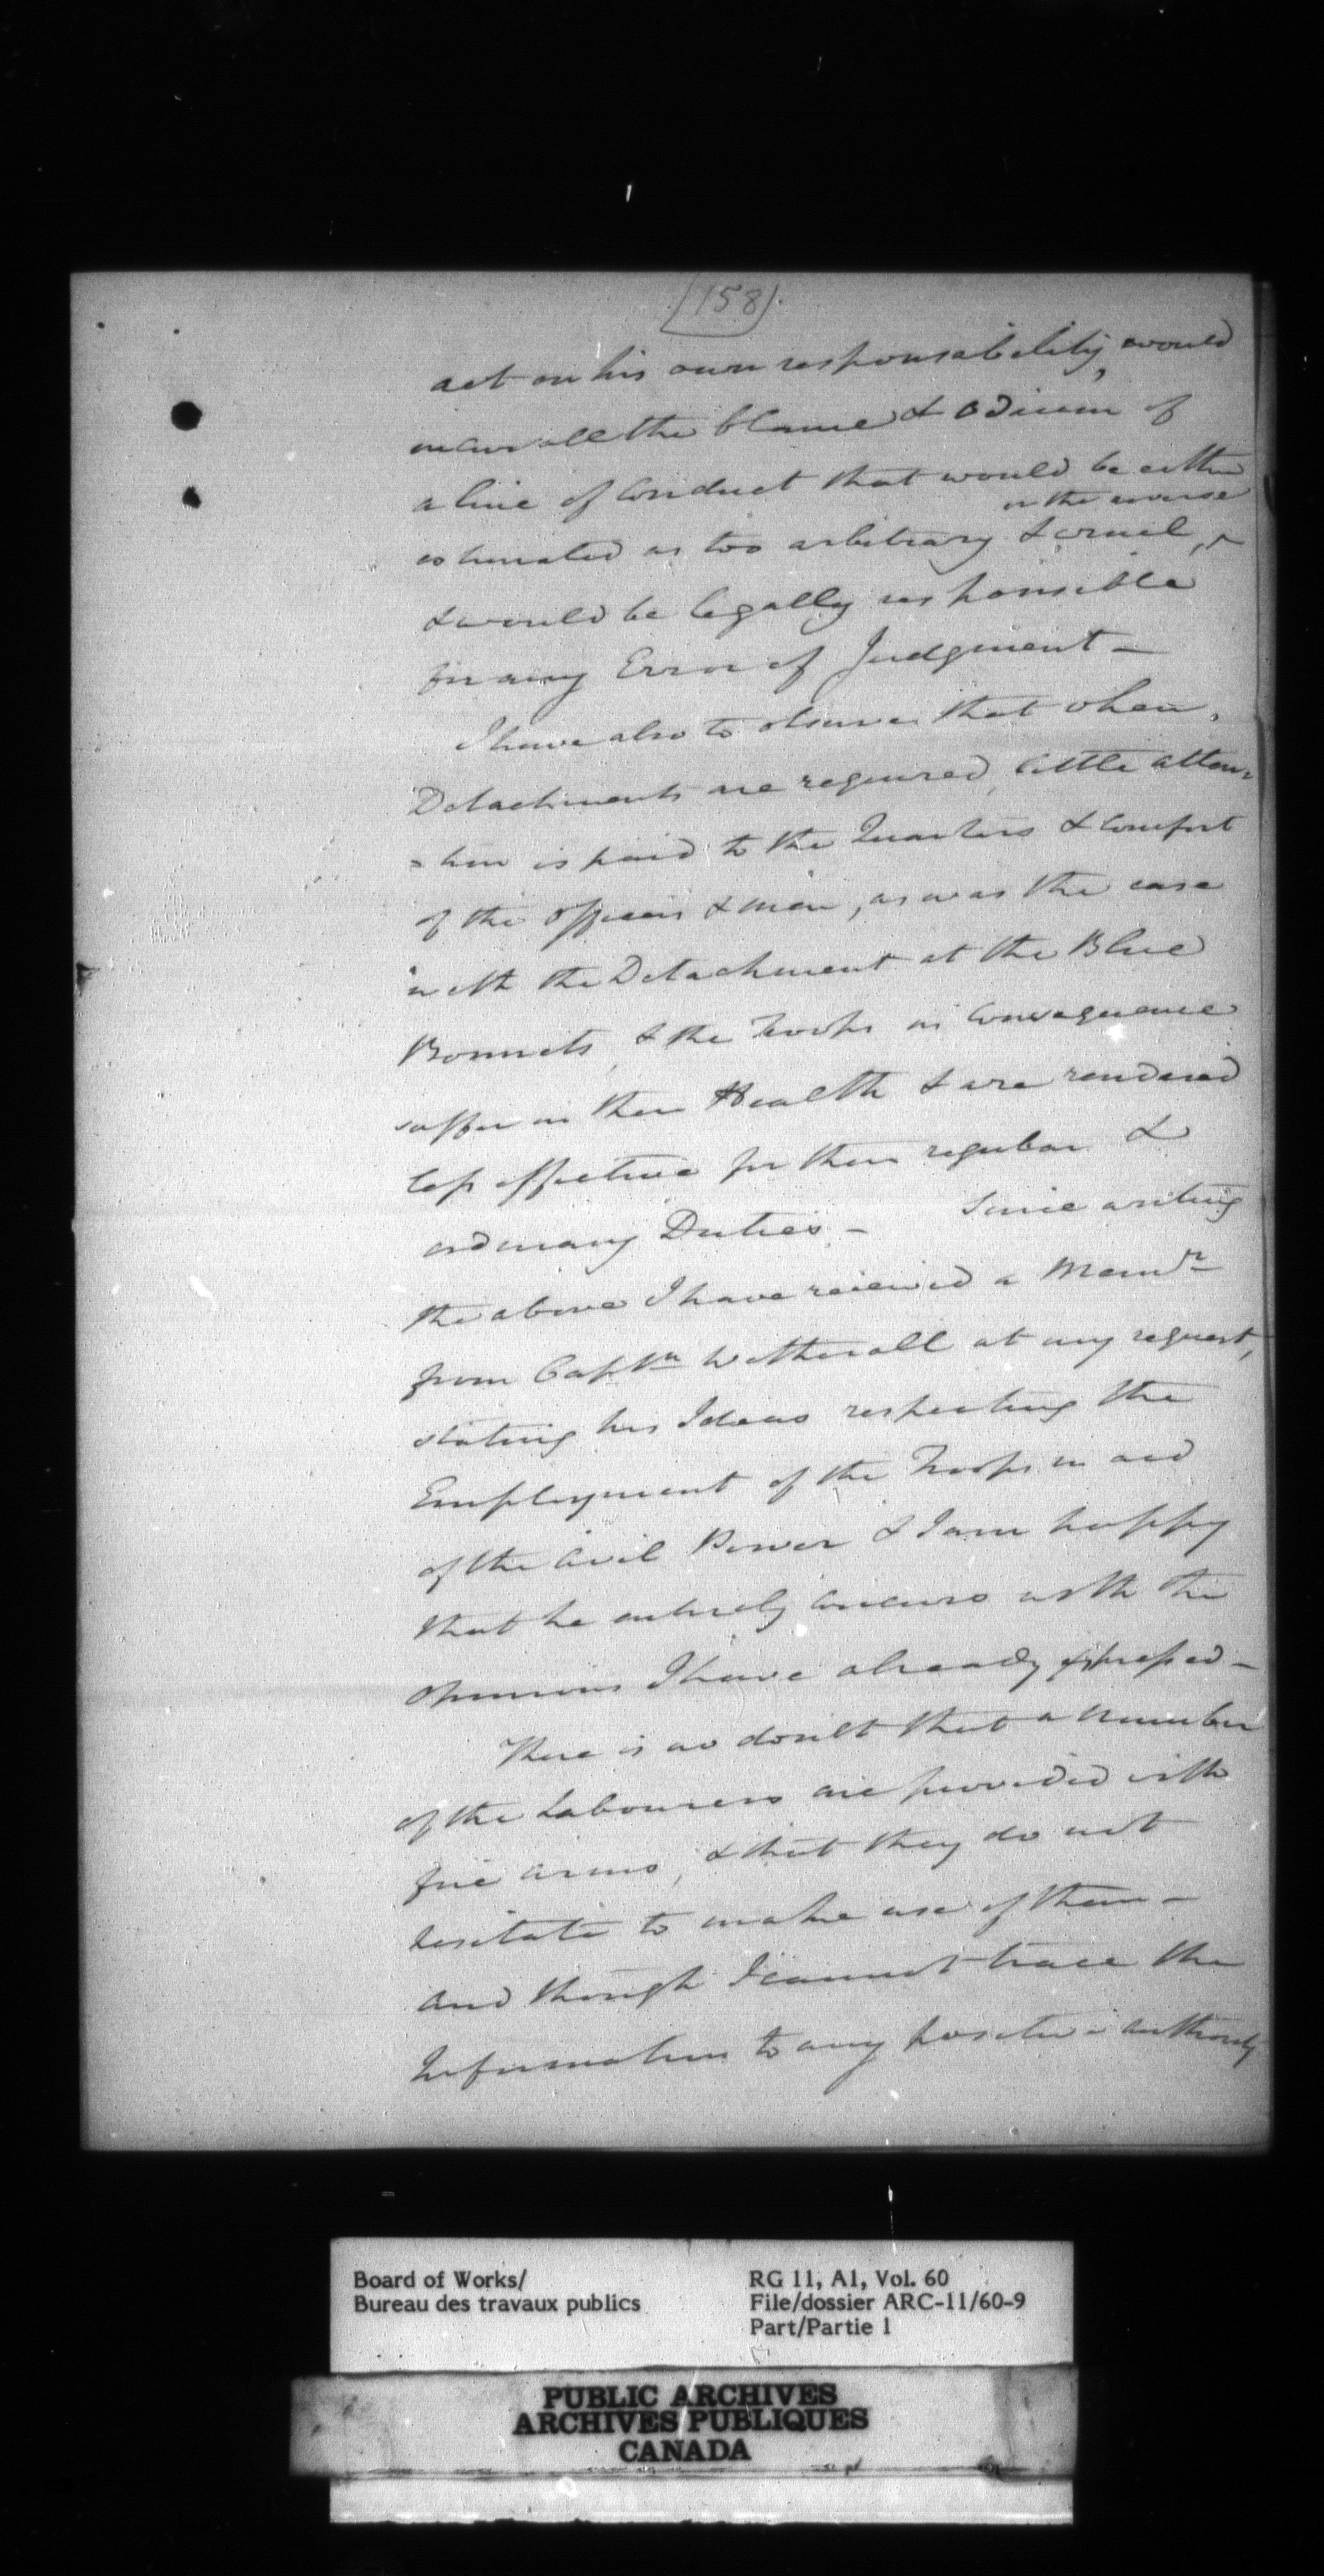 (158)
act on his own responsability, would
incur all the blame & odium of
a line of Conduct that would be either
or the reverse
estimated as too arbitrary & cruel, ^
& would be legally responsible
for any Error of Judgment –
I have also to observe that when,
Detachments are required, little atten-
-tion is paid to the Quarters & comfort
of the officers & men, as was the case
with the Detachment at the Blue
Bonnets, & the Troops in Consequence
suffer in their Health & are rendered
less effective for their regular &
ordinary Duties – Since writing
the above I have received a Memdn
from Captn Wetherall at my request,
stating his Ideas respecting the
Employment of the Troops in aid
of the Civil Power & I am happy
that he entirely concurs with the
opinions I have already expressed –
There is no doubt that a number
of the Labourers are provided with
fire arms, & that they do not
hesitate to make use of them –
And though I cannot trace the
Information to any positive authority
Board of Works/
Bureau des travaux publics
RG 11, A1, Vol. 60
File/dossier ARC-11/60-9
Part/Partie 1
PUBLIC ARCHIVES
ARCHIVES PUBLIQUES
CANADA